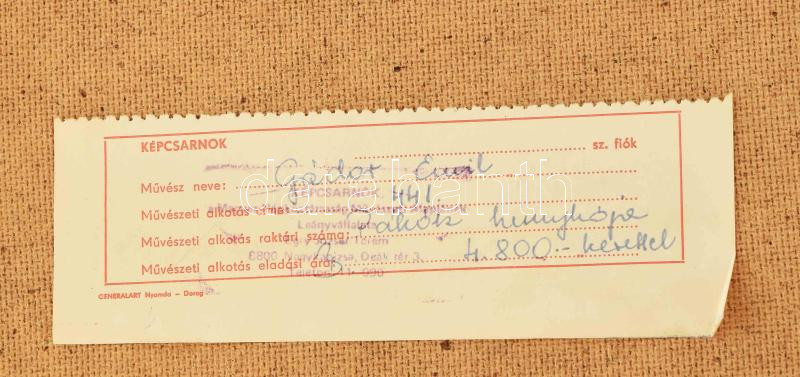 KÉPCSARNOK
sz. fiók
Művész neve: Gádor Emil
Művészeti alkotás címe: 441.
Művészeti alkotás raktári száma: Rákóczi kunyhója
Művészeti alkotás eladási ára: 4.800.- kerettel
KÉPCSARNOK
Leányvállalata
Terem
8800 Nagykanizsa, Deák tér 3.
Telefon: 11-
GENERALART Nyomda – Dorog
darabanth